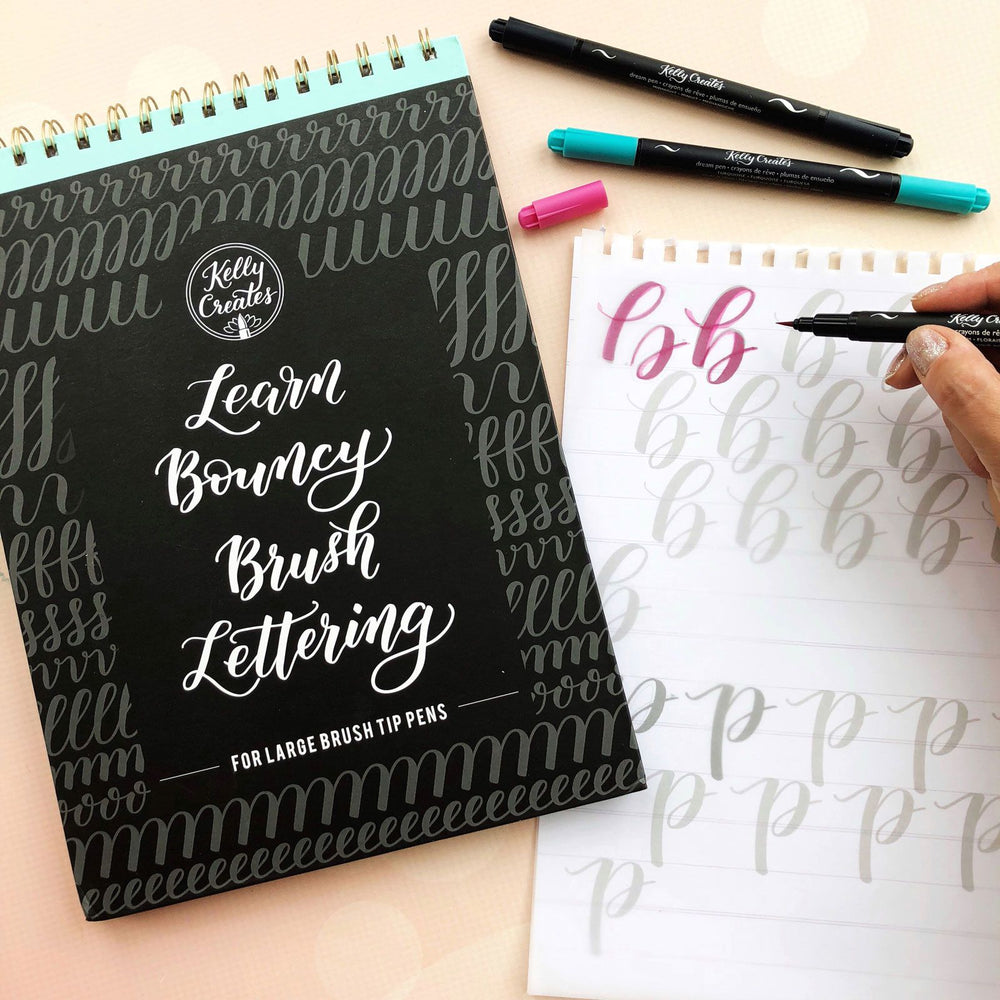 Kelly
Creates
Learn
Bouncy
Brush
Lettering
FOR LARGE BRUSH TIP PENS
Kelly Creates
dream pen • crayons de rêve • plumas de ensueño
Kelly Creates
dream pen • crayons de rêve • plumas de ensueño
TURQUOISE • TURQUOISE • TURQUESA
Kelly Cr
b b b b
b b b b
b b b b
b
p p p p
p p p p
p